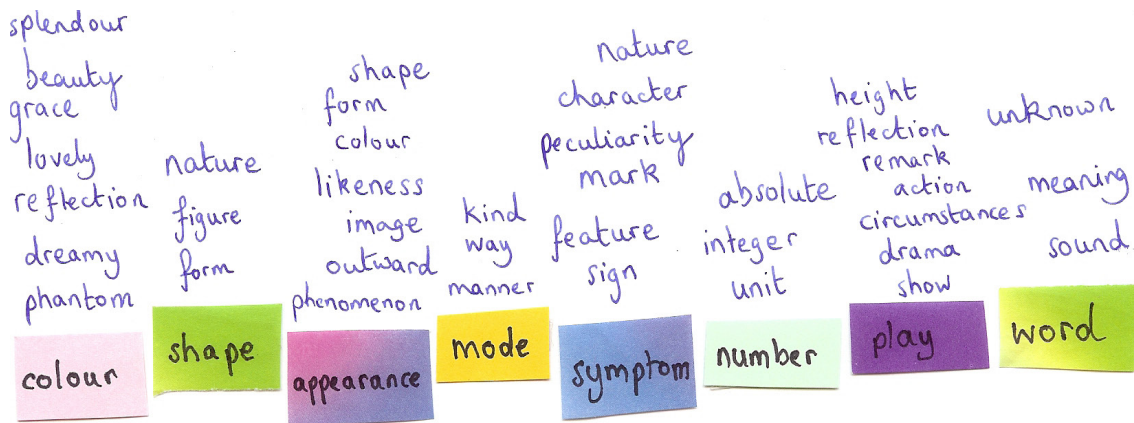 splendour
beauty
grace
lovely
reflection
dreamy
phantom
colour
nature
figure
form
shape
shape
form
colour
likeness
image
outward
phenomenon
appearance
kind
way
manner
mode
nature
character
peculiarity
mark
feature
sign
symptom
absolute
integer
unit
number
height
reflection
remark
action
circumstances
drama
show
play
unknown
meaning
sound
word